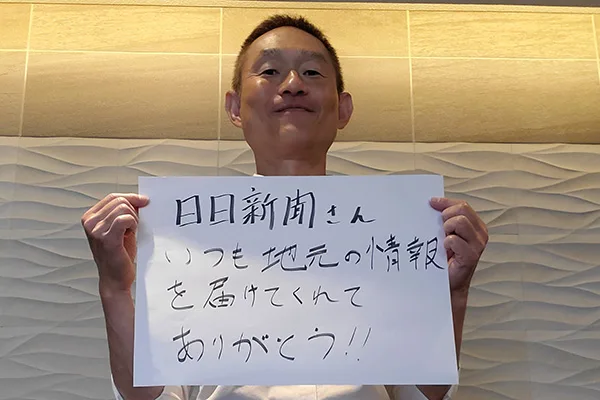 日日新聞さん
いつも地元の情報
を届けてくれて
ありがとう!!